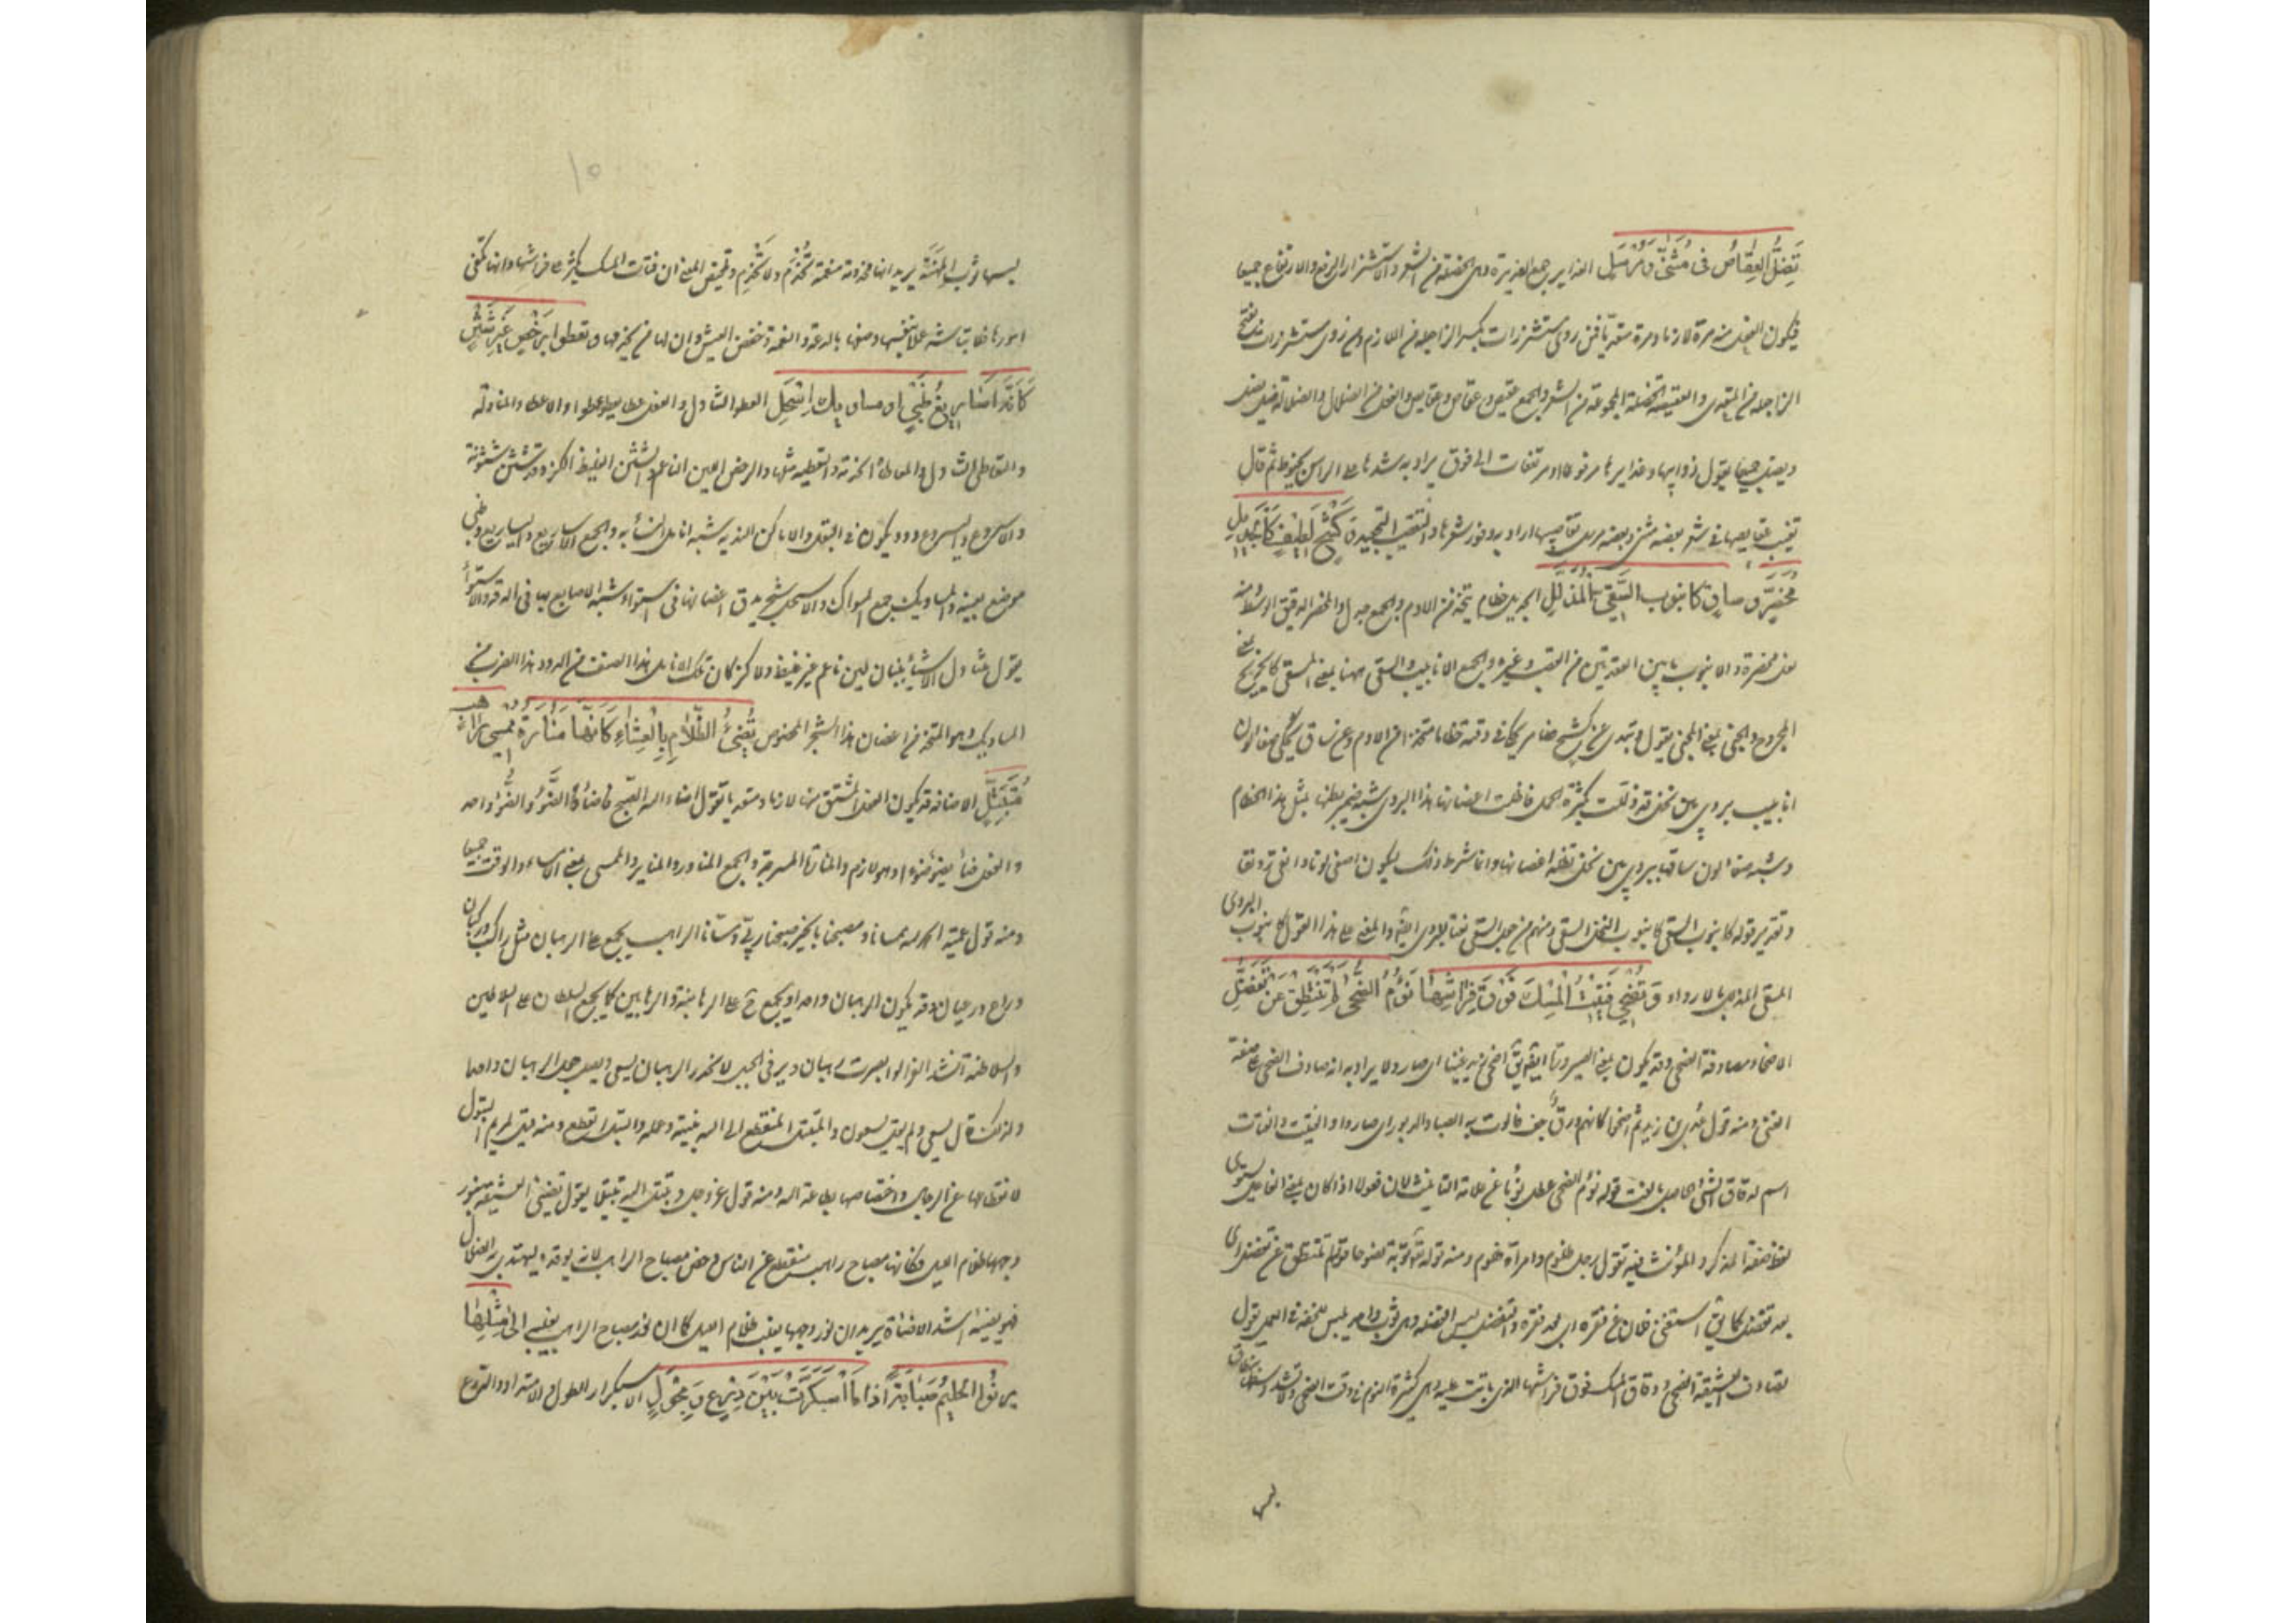 تَضِلُّ العِقَاصُ فى مُثَنًّى وَمُرْسَلِ الغداير جمع الغديرة وهى الخصلة من الشعر والاستشزار الرفع والارتفاع جميعا
فيكون الفعل منه مرة لازما ومرة متعديا فمن روى مستشزرات بكسر الزا جعله من اللازم ومن روى مستشزرات بفتح
الزا جعله من المتعدى والعقيصة الخصلة المجموعة من الشعر والجمع عقيص وعقاص وعقايص والفعل من الضلال والضلالة ضل يضل
ويضل جميعا يقول ذوايبها وغدايرها مرفوعات او مرتفعات الى فوق يراد به شدها على الراس بخيوط ثم قال
تغيب عقايصها فى شعر بعضه مثنى وبعضه مرسل اراد به وفور شعرها والتعقيب التجعيد وَكَشْحٍ لَطِيْفٍ كَالجَدِيلِ
مُخَصَّرٍ وساقٍ كانبوب السَّقِىِّ المُذَلَّلِ الجديل خطام يتخذ من الادم والجمع جدل والمخصر الدقيق الوسط ومنه
نعل مخصرة والانبوب ما بين العقدتين من القصب وغيره والجمع الانابيب والسقى ههنا بمعنى المسقى كالجريح بمعنى
المجروح والجنى بمعنى المجنى يقول وتبدى عن كشح ضامر يحكى فى دقته خطاما متخذا من الادم وعن ساق يحكى صفا لونه
انابيب بردى بين نخل قد ذللت بكثرة الحمل فاظلت اغصانها هذا البردى شبه ضمر بطنها بمثل هذا الخطام
وشبه صفا لون ساقها ببردى بين نخل تظله اغصانها وانما شرط ذلك ليكون اصفى لونا وانقى رونقا
وتقدير قوله كانبوب السقى كانبوب النخل السقى ومنهم من جعل السقى نعتا للبردى ايضا والمعنى على هذا القول كانبوب البردى
المسقى المذلل بالارواء وَتُضْحِى فَتِيْتُ الْمِسْكِ فَوْقَ فِرَاشِهَا نَؤُمُ الضُّحَى لَمْ تَنْتَطِقْ عَنْ تَفَضُّلِ
الاضحاء مصادفة الضحى وقد يكون بمعنى الصيرورة ايضا يق اضحى زيد غنيا اى صار ولا يراد به انه صادف الضحى على صفة
الغنى ومنه قول عدى بن زيد ثم اضحوا كانهم ورق جف فالوت به الصبا والدبور اى صاروا والفتيت والفتات
اسم لدقاق الشئ الحاصل بالفت قوله نؤم الضحى عطل نؤما عن علامة التانيث لان فعولا اذا كان بمعنى الفاعل يستوى
لفظ صفة المذكر والمؤنث فيه تقول رجل ظلوم وامراة ظلوم ومنه قوله تع توبة نصوحا قوله لم تنتطق عن تفضل اى
بعد تفضل كما يق استغنى فلان عن فقره اى بعد فقره والتفضل لبس الفضلة وهى ثوب واحد يلبس للخفة فى العمل يقول
تصادف العشيقة الضحى ودقاق المسك فوق فراشها الذى باتت عليه وهى كثيرة النوم فى وقت الضحى ولا تشد وسطها بنطاق
لبس
١٥
لبسها ثوب المهنة يريد انها مخدومة منعمة تُخْدَمُ ولا تَخْدِمُ وتلخيص المعنى ان فتات المسك يكثر على فراشها وانها تكفى
امورها فلا تباشر عملا بنفسها وصفها بالدعة والنعمة وخفض العيش وان لها من يخدمها وَتعطو ابِرَخْصٍ غَيْرِ شَثْنٍ
كَاَنَّهُ اَسَارِيعُ ظَبْىٍ او مساويك اِسْحِلِ العطو التناول والفعل عطا يعطو عطوا والاعطاء المناولة
والتعاطى التناول والمعاطاة الخدمة والتعطية مثلها والرخص اللين الناعم والشثن الغليظ الكز وقد شثن شثونة
والاسروع واليسروع دود يكون فى البقل والاماكن الندية شبه انامل النساء به والجمع الاساريع واليساريع وظبى
موضع بعينه والمساويك جمع المسواك والاسحل شجر يدق اغصانها فى استواء شبه الاصابع بها فى الدقة والاستواء
يقول تتناول الاشياء ببنان لين ناعم غير غليظ ولا كز كان تلك الانامل هذا الصنف من الدود وهذا الضرب من
المساويك وهو المتخذ من اغصان هذا الشجر المخصوص تُضِئُ الظَّلَامِ بِالْعِشَاءِ كَاَنَّهَا مَنَارَةُ مُمْسَى رَاهِبٍ
مُتَبَتِّلِ الاضاءة قد يكون الفعل المشتق منها لازما ومتعديا تقول اضاء الله الصبح فاضاء والضَّوْءُ والضُّوْءُ واحد
والفعل ضاء يضوء ضوءا وهو لازم والمنارة المسرجة والجمع المناور والمناير والممسى بمعنى الامساء والوقت جميعا
ومنه قول امية الحمد لله ممسانا ومصبحنا بالخير صبحنا ربى ومسانا الراهب يجمع على الرهبان مثل راكب وركبان
وراع ورعيان وقد يكون الرهبان واحدا ويجمع ح على الرهابنة والرهابين كما يجمع السلطان على السلاطين
والسلاطنة انشد الفرا لو ابصرت رهبان دير فى الجبل لانحدر الرهبان يسعى ويصل جعل الرهبان واحدا
ولذلك قال يسعى ولم يقل يسعون والمتبتل المنقطع الى الله بنيته وعمله والبتل القطع ومنه قيل لمريم البتول
لانقطاعها عن الرجال واختصاصها بطاعة الله ومنه قوله عز وجل وتبتل اليه تبتيلا يقول تضئ العشيقة بنور
وجهها ظلام الليل فكانها مصباح راهب منقطع عن الناس وخص مصباح الراهب لانه يوقده ليهتدى به الضلال
فهو يضيئه اشد الاضاءة يريد ان نور وجهها يغلب ظلام الليل كما ان نور مصباح الراهب يغلبه اِلَى مِثْلِهَا
يرنُوا الحليمُ صَبَابَةً اذا مَا اسْبَكَرَّتْ بَيْنَ دِرْعٍ وَمِجْوَلِ الاسبكرار الطول والامتداد والدرع